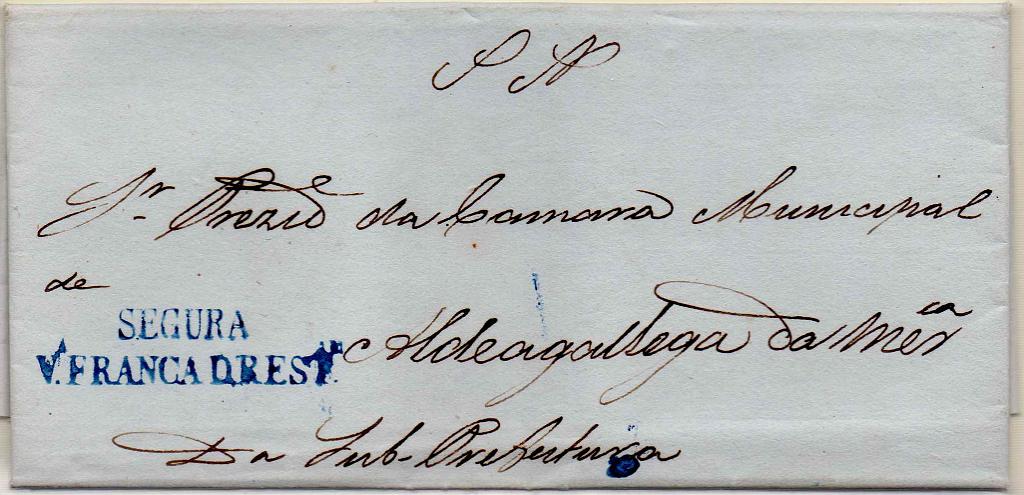 S N
Sr. Prezide da Camara Municipal
de
SEGURA
V. FRANCA D. REST.
Aldeagallega da Mercª
Da Sub-Prefeitura